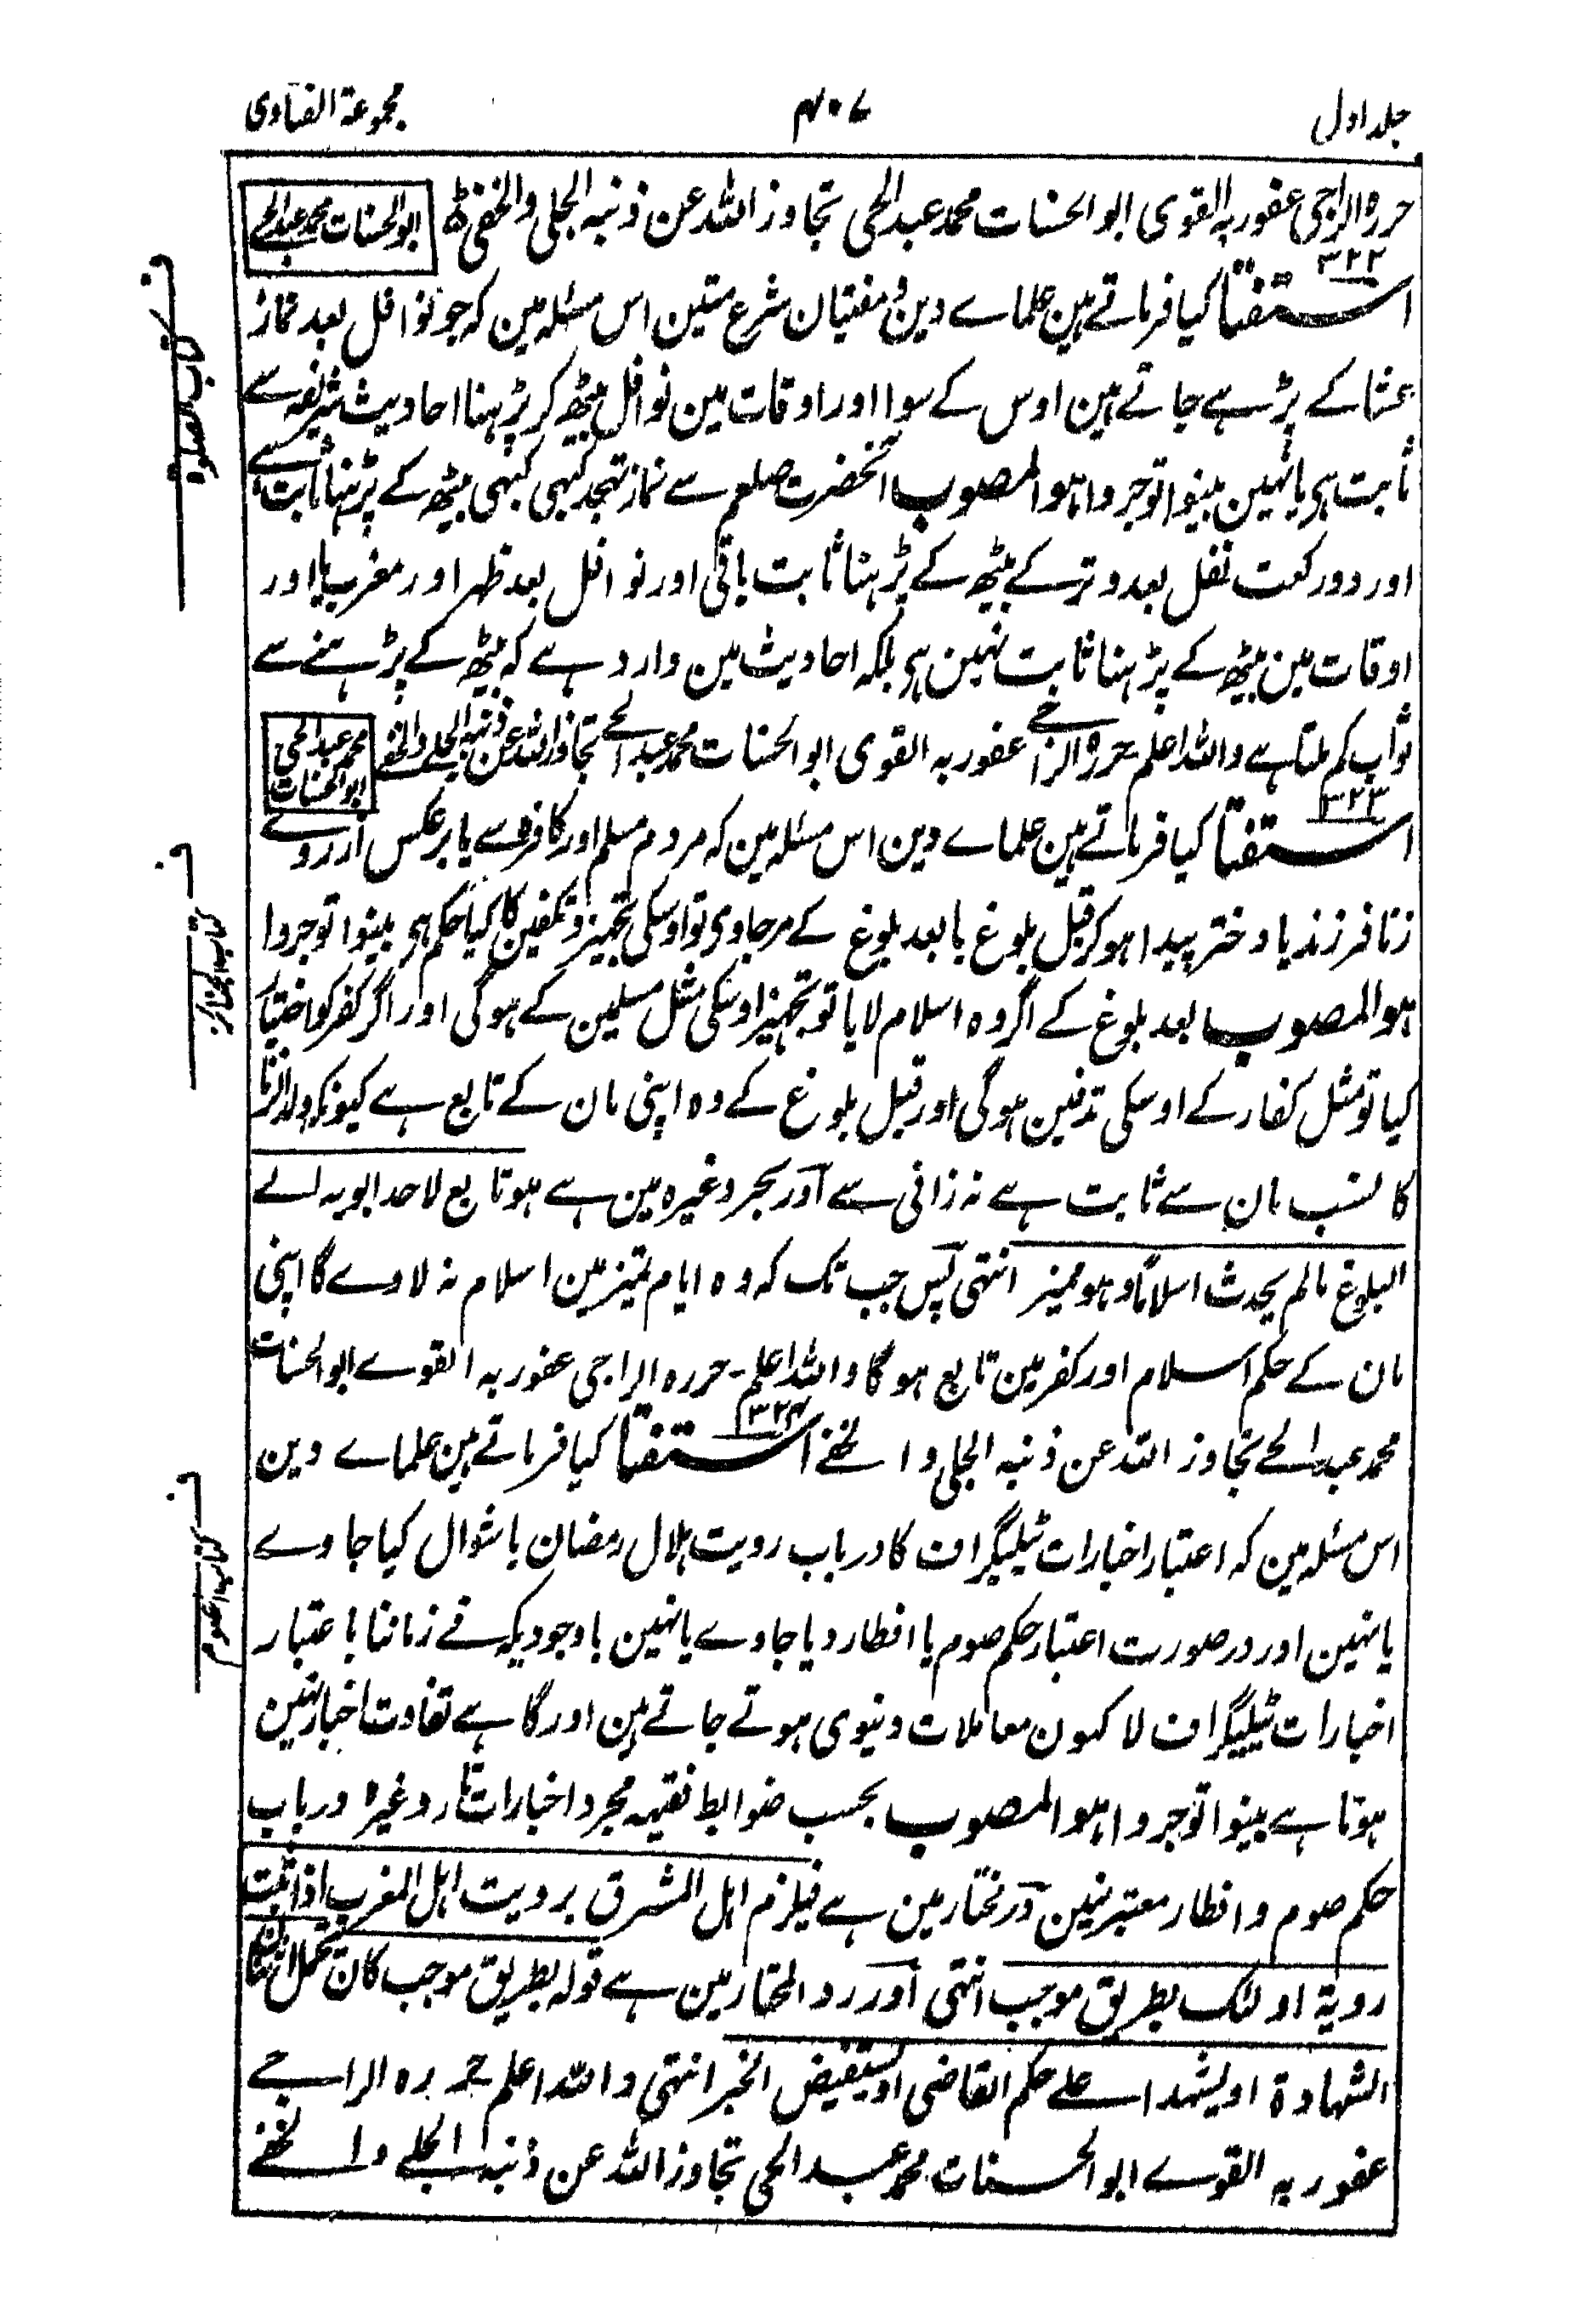 جلد اول
۴۰۷
مجموعۃ الفتاوی
حررہ الراجی عفو ربہ القوی ابو الحسنات محمد عبد الحی تجاوز اللہ عن ذنبہ الجلی والخفی
ابو الحسنات محمد عبد الحی
۳۲۲
استفتا کیا فرماتے ہین علماے دین و مفتیان شرع متین اس مسئلہ مین کہ جو نوافل بعد نماز
عشا کے پڑہے جاتے ہین اوس کے سوا اور اوقات مین نوافل بیٹھ کر پڑہنا احادیث شریفہ سے
ثابت ہی یا نہین بینوا توجروا ہو المصوب آنحضرت صلعم سے نماز تہجد کبہی کبہی بیٹھ کے پڑہنا ثابت ہے
اور دو رکعت نفل بعد وتر کے بیٹھ کے پڑہنا ثابت باقی اور نوافل بعد ظہر اور مغرب یا اور
اوقات مین بیٹھ کے پڑہنا ثابت نہین ہی بلکہ احادیث مین وارد ہے کہ بیٹھ کے پڑہنے سے
ثواب کم ملتا ہے واللہ اعلم حررہ الراجی عفو ربہ القوی ابو الحسنات محمد عبد الحے تجاوز اللہ عن ذنبہ الجلے والخفے
محمد عبد الحی ابو الحسنات
۳۲۳
استفتا کیا فرماتے ہین علماے دین اس مسئلہ مین کہ مردم مسلم اور کافرہ سے یا برعکس ازروے
زنا فرزند یا دختر پیدا ہو کر قبل بلوغ یا بعد بلوغ کے مرجاوی تو اوسکی تجہیز و تکفین کا کیا حکم ہی بینوا توجروا
ہو المصوب بعد بلوغ کے اگر وہ اسلام لایا تو تجہیز اوسکی مثل مسلمین کے ہوگی اور اگر کفر کو اختیار
کیا تو مثل کفار کے اوسکی تدفین ہوگی اور قبل بلوغ کے وہ اپنی مان کے تابع ہے کیونکہ ولد الزنا
کا نسب مان سے ثابت ہے نہ زانی سے اور بحر وغیرہ مین ہے ہو تابع لاحد ابویہ الے
البلوغ مالم یحدث اسلاما وہو ممیز انتہی پس جب تک کہ وہ ایام تمیز مین اسلام نہ لاوے گا اپنی
مان کے حکم اسلام اور کفر مین تابع ہوگا واللہ اعلم۔ حررہ الراجی عفو ربہ القوے ابو الحسنات
محمد عبد الحے تجاوز اللہ عن ذنبہ الجلی والخفے ۳۲۴ استفتا کیا فرماتے ہین علماے دین
اس مسئلہ مین کہ اعتبار اخبارات ٹیلیگراف کا در باب رویت ہلال رمضان یا شوال کیا جاوے
یا نہین اور در صورت اعتبار حکم صوم یا افطار دیا جاوے یا نہین باوجودیکہ فے زماننا باعتبار
اخبارات ٹیلیگراف لاکہون معاملات دنیوی ہوتے جاتے ہین اور گاہے تفاوت اخبار نہین
ہوتا ہے بینوا توجروا ہو المصوب بحسب ضوابط فقہیہ مجرد اخبارات تار وغیرہ در باب
حکم صوم و افطار معتبر نہین در مختار مین ہے فیلزم اہل المشرق برویت اہل المغرب اذا ثبت
رویۃ اولئک بطریق موجب انتہی اور رد المحتار مین ہے قولہ بطریق موجب کان یتحمل اثنان
الشہادۃ او یشہدا علے حکم القاضی او یستفیض الخبر انتہی واللہ اعلم حررہ الراجے
عفو ربہ القوے ابو الحسنات محمد عبد الحی تجاوز اللہ عن ذنبہ الجلے والخفے
کتاب الصلوۃ
کتاب الجنائز
کتاب الصوم